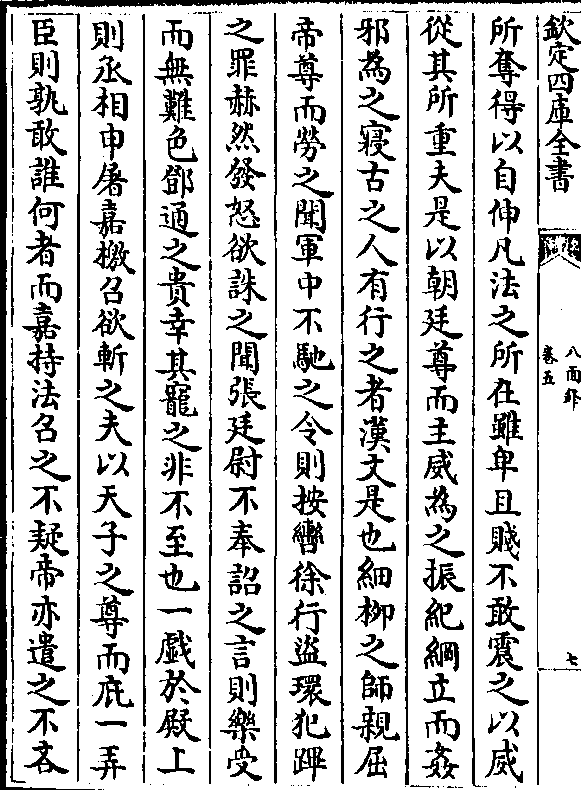 欽定四庫全書
八面鋒
卷五
七
所奪得以自伸凡法之所在雖卑且賤不敢震之以威
從其所重夫是以朝廷尊而主威為之振紀綱立而姦
邪為之寢古之人有行之者漢文是也細柳之師親屈
帝尊而勞之聞軍中不馳之令則按轡徐行盜環犯蹕
之罪赫然發怒欲誅之聞張廷尉不奉詔之言則樂受
而無難色鄧通之貴幸其寵之非不至也一戲於殿上
則丞相申屠嘉檄召欲斬之夫以天子之尊而庇一弄
臣則孰敢誰何者而嘉持法召之不疑帝亦遣之不吝